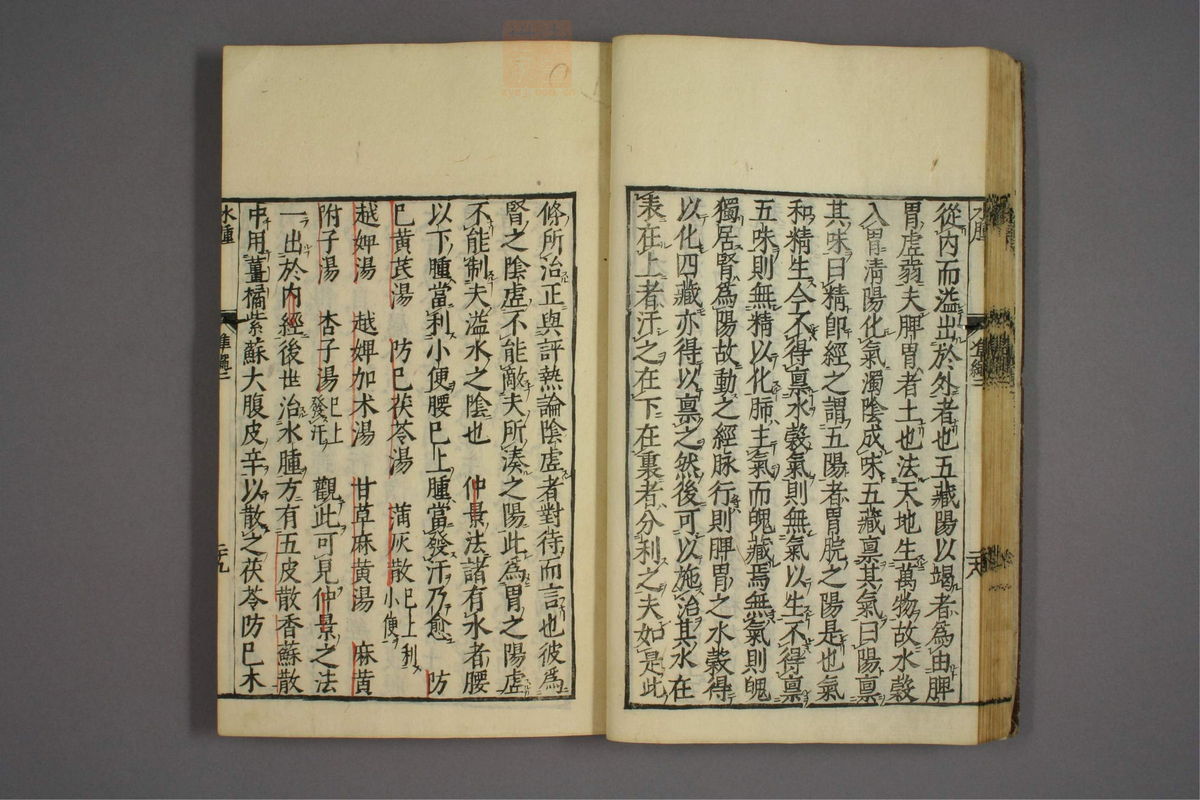 從內而溢出於外者也五藏陽以竭者爲由脾
胃虛弱夫脾胃者土也法天地生萬物故水穀
入胃清陽化氣濁陰成味五藏稟其氣曰陽稟
其味曰精即經之謂五陽者胃脘之陽是也氣
和精生今不得稟水穀氣則無氣以生不得稟
五味則無精以化肺主氣而魄藏焉無氣則魄
獨居腎爲陽故動之經脉行則脾胃之水穀得
以化四藏亦得以稟之然後可以施治其水在
表在上者汗之在下在裏者分利之夫如是此
條所治正與評熱論陰虛者對待而言也彼爲
腎之陰虛不能敵夫所湊之陽此爲胃之陽虛
不能制夫溢水之陰也 仲景法諸有水者腰
以下腫當利小便腰巳上腫當發汗乃愈 防
巳黃芪湯 防巳茯苓湯 蒲灰散巳上利小便
越婢湯 越婢加术湯 甘草麻黃湯 麻黃
附子湯 杏子湯巳上發汗 觀此可見仲景之法
一出於內經後世治水腫方有五皮散香蘇散
中用薑橘紫蘇大腹皮辛以散之茯苓防巳木
水腫 準繩二 二十九